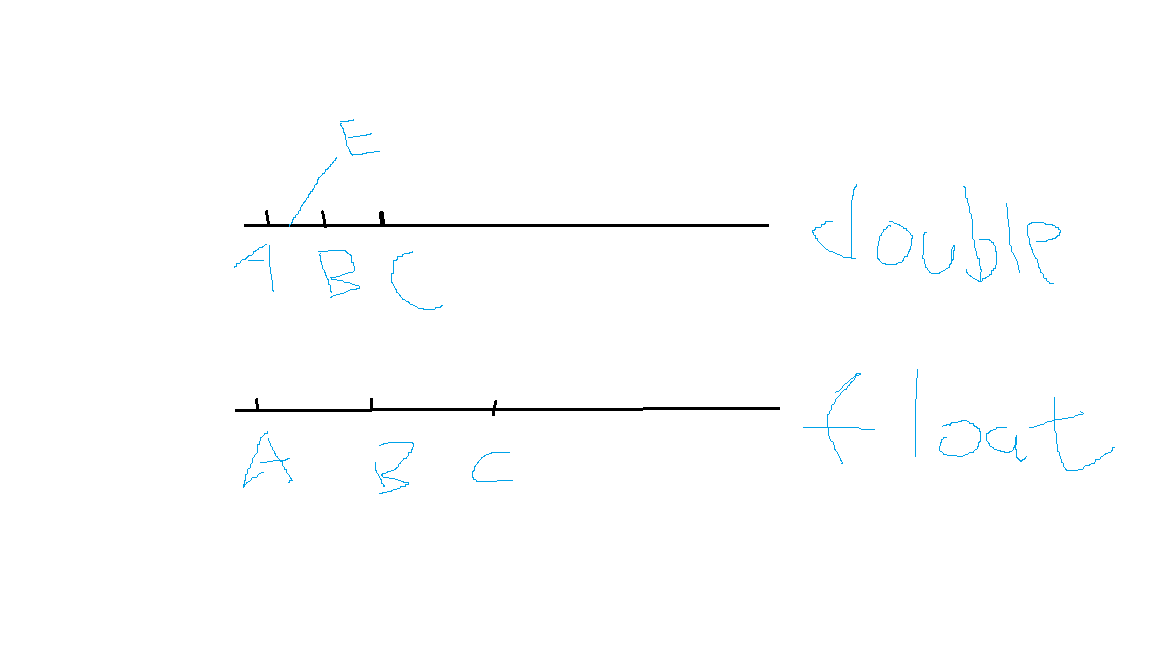 E
A B C double
A B C float